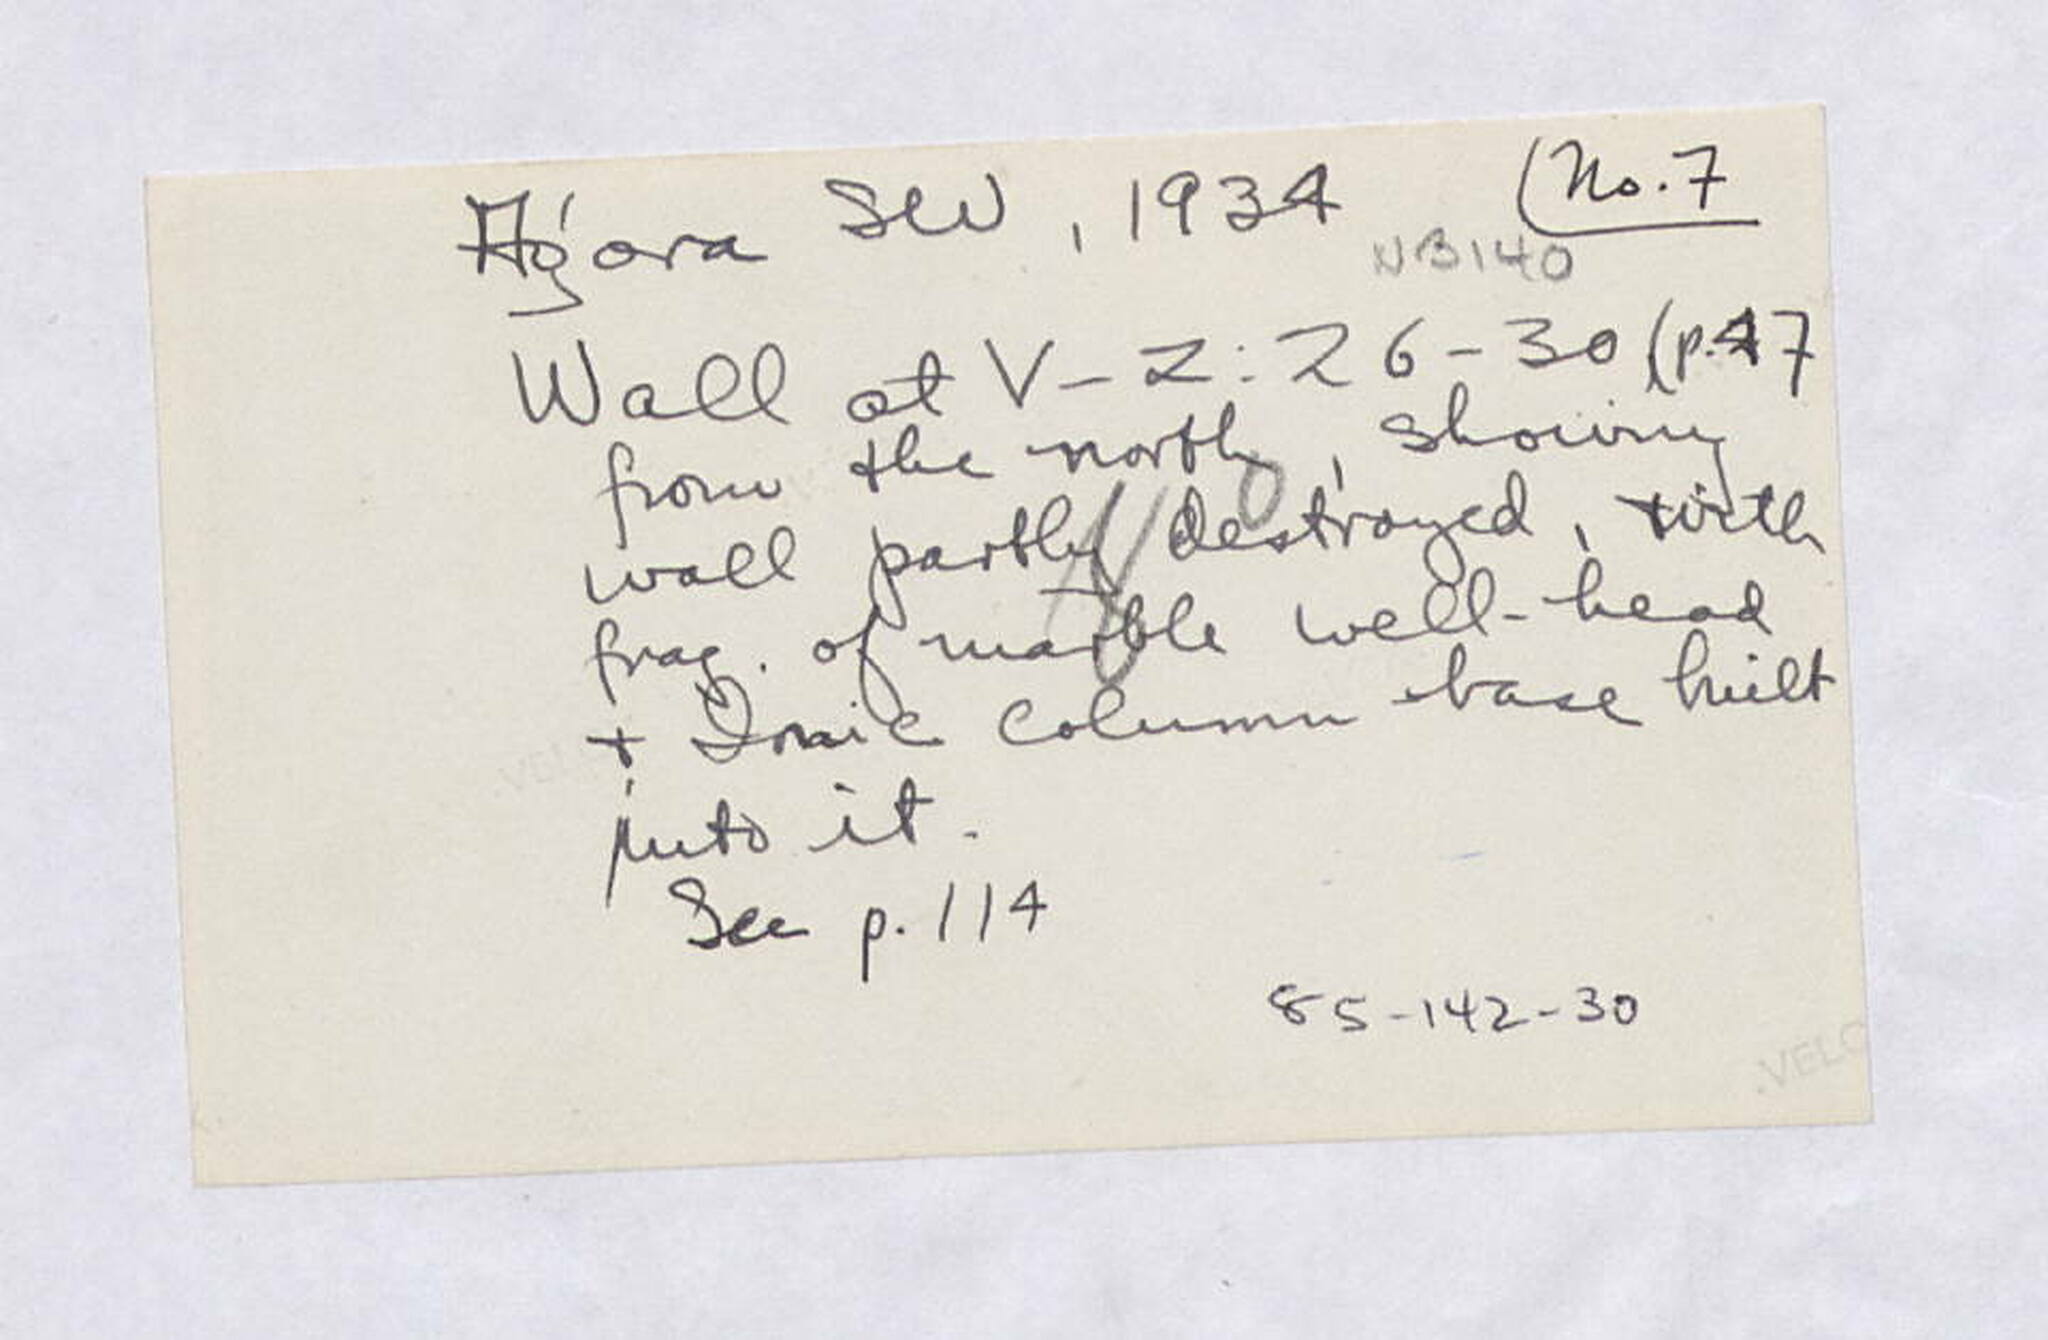 Agora SW, 1934
No. 7
NB140
Wall at V-Z:26-30 (p.47
from the north, showing
wall partly destroyed, with
frag. of marble well-head
+ Ionic column base built
into it.
See p.114
85-142-30
VELO